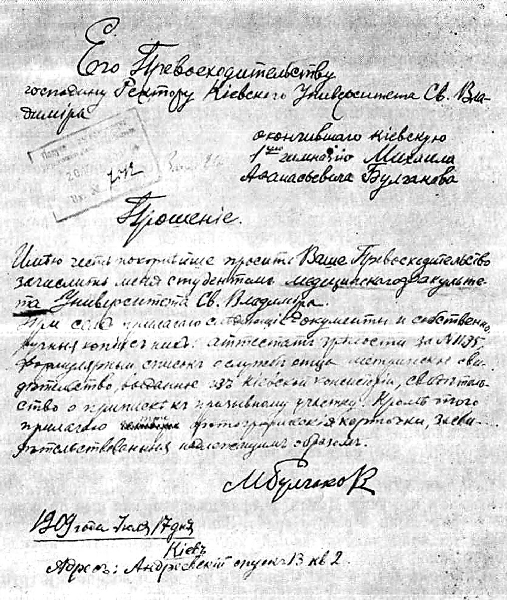 Его Превосходительству
господину Ректору Кіевского Университета Св. Вла-
диміра
окончившаго Кіевскую
1ую гимназію Михаила
Афанасьевича Булгакова
Прошеніе.
Имѣю честь покорнѣйше просить Ваше Превосходительство
зачислить меня студентомъ медицинскаго факульте-
та Университета Св. Владиміра.
При семъ прилагаю слѣдующіе документы и собственно-
ручныя копіи съ нихъ: аттестатъ зрѣлости за №
формулярный списокъ о службѣ отца, метрическое сви-
дѣтельство, выданное изъ Кіевской Консисторіи, свидѣтель-
ство о припискѣ къ призывному участку. Кромѣ того
прилагаю три фотографическія карточки, засви-
дѣтельствованныя надлежащимъ образомъ.
МБулгаковъ
1909 года Іюля 17 дня
Кіевъ
Адресъ: Андреевскій спускъ 13 кв 2.